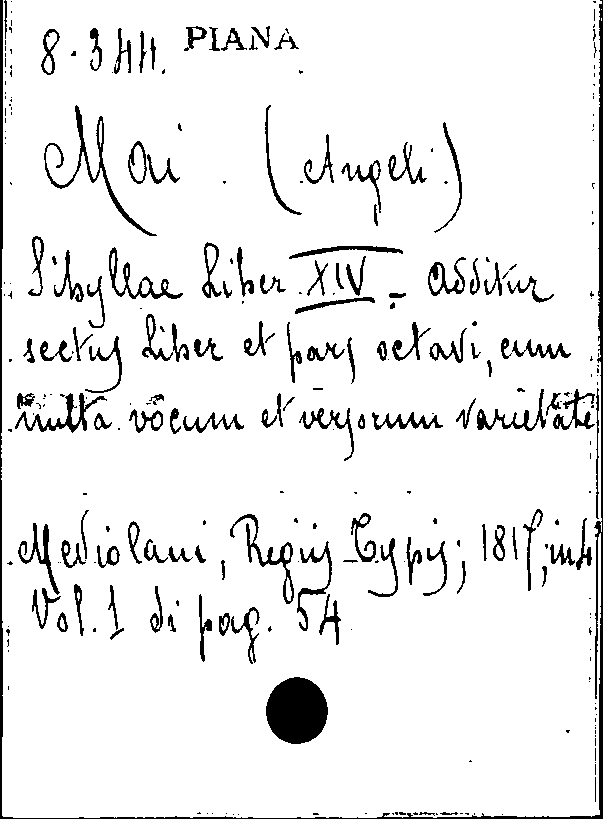 8.344. PIANA
Mai. (Angeli.)
Sibyllae Liber XIV. - Additur
sectus Liber et pars octavi, cum
multa vocum et versorum varietate
Mediolani, Regiis Typis; 1817, in 4°
Vol. 1 di pag. 54